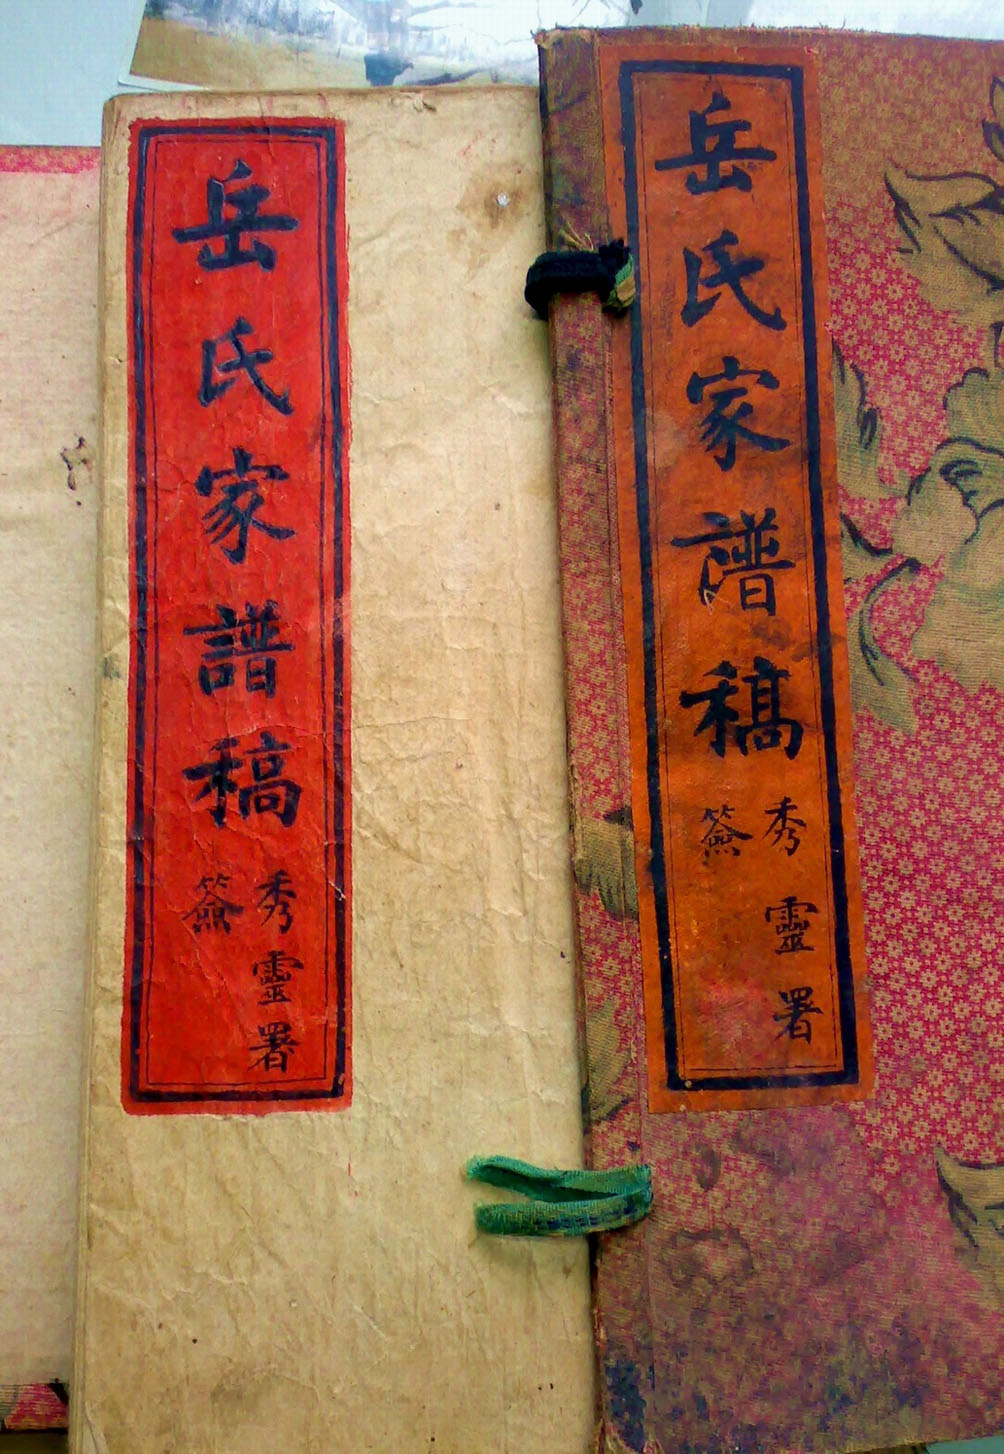 岳氏家譜稿
秀靈署
簽
岳氏家譜稿
秀靈署
簽